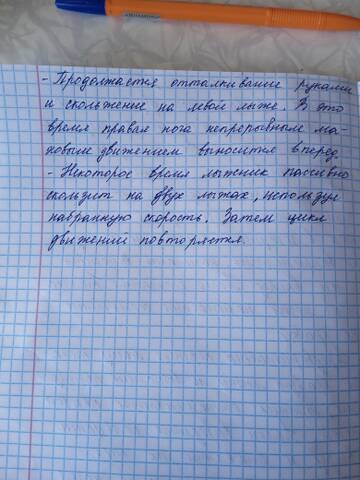 - Продолжается отталкивание руками
и скольжение на левой лыже. В это
время правая нога непрерывным ма-
ховым движением выносится вперед.
- Некоторое время лыжник пассивно
скользит на двух лыжах, используя
набранную скорость. Затем цикл
движений повторяется.